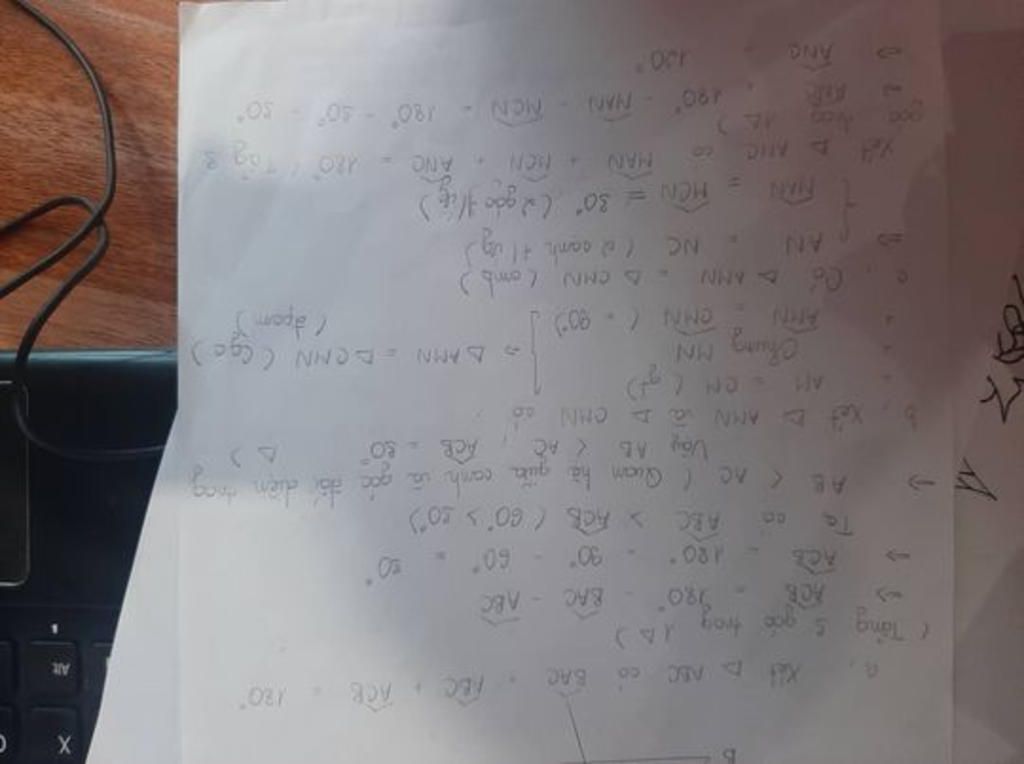 B
a, Xét Δ ABC có BAC + ABC + ACB = 180°
( Tổng 3 góc trog 1Δ )
=> ACB = 180° - BAC - ABC
=> ACB = 180° - 90° - 60° = 30°
Ta có ABC > ACB ( 60° > 30° )
=> AB < AC ( Quan hệ giữa cạnh và góc đối diện trog Δ )
Vậy AB < AC , ACB = 30°
b, Xét Δ AMN và Δ CMN có :
AM = CM ( gt )
Chung MN
AMN = CMN ( = 90° )
=> Δ AMN = Δ CMN ( cgc )
( đpcm )
c, Có Δ AMN = Δ CMN ( cmb )
=> AN = NC ( 2 cạnh t/ứg )
MAN = MCN = 30° ( 2 góc t/ứg )
Xét Δ ANC có MAN + MCN + ANC = 180° ( Tổng 3
góc trog 1Δ )
=> 180° - MAN - MCN = 180° - 30° - 30°
=> ANC = 120°
Alt
X